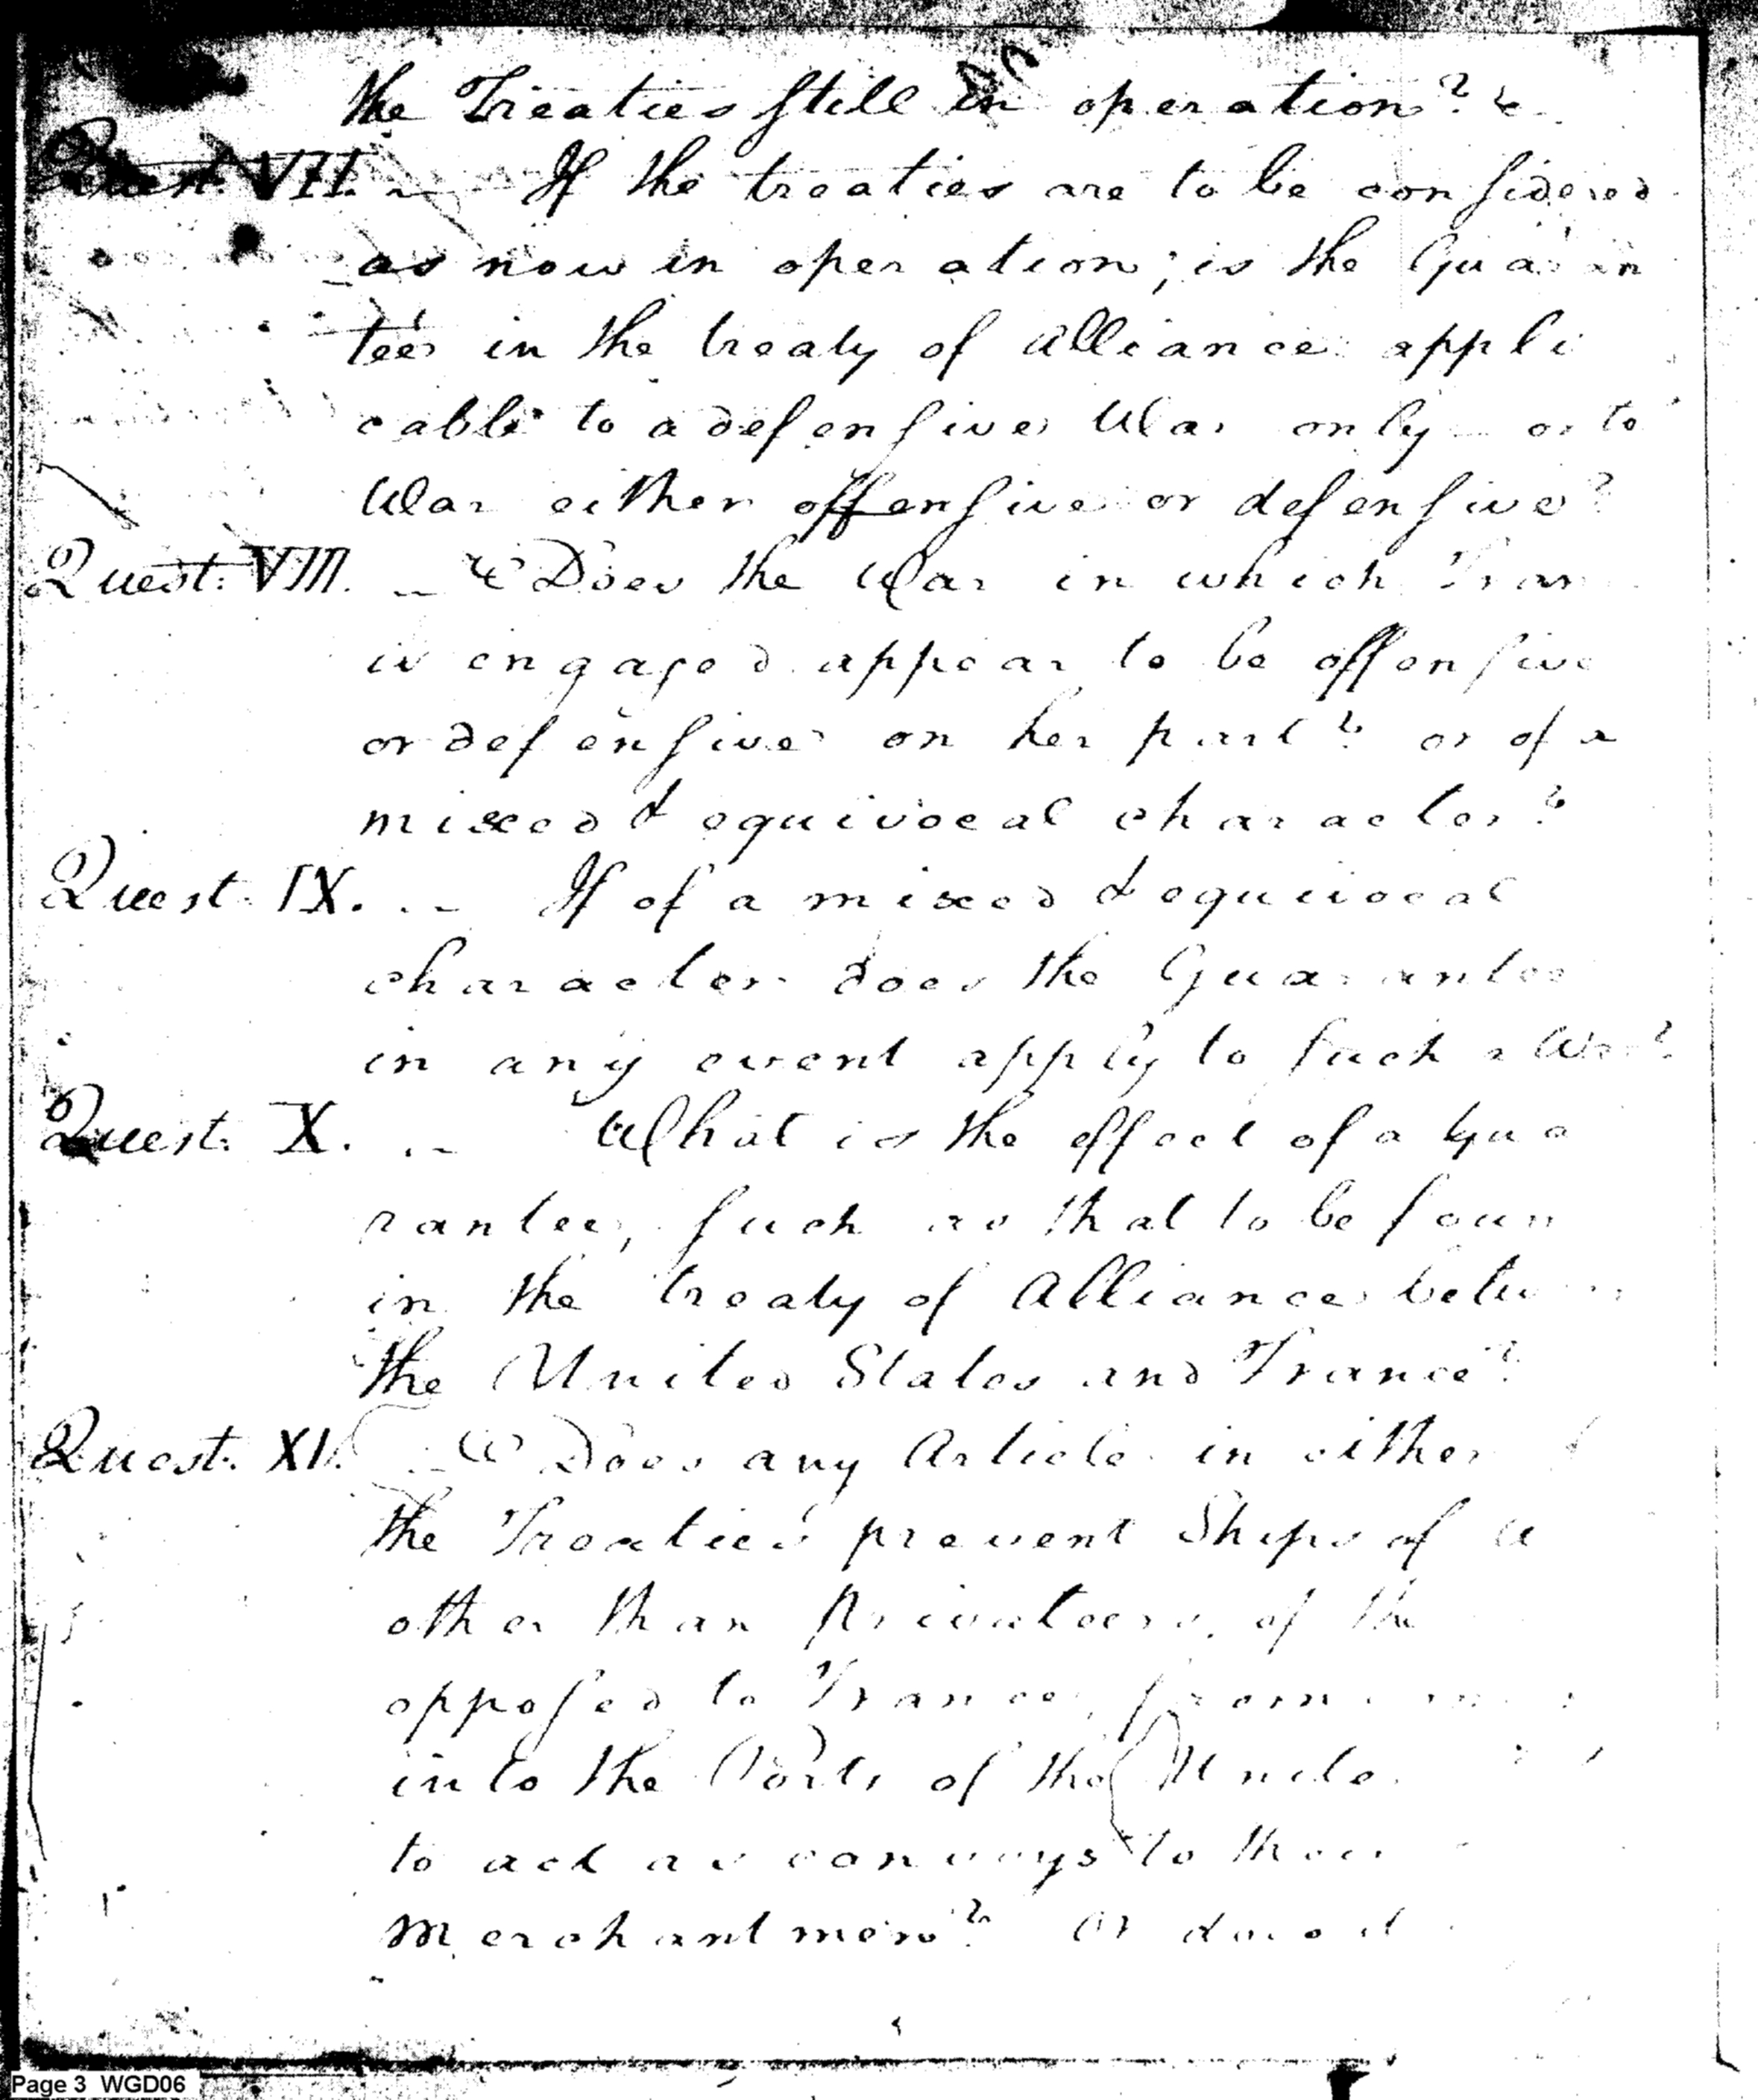 the Treaties still in operation?
Quest. VII. — If the treaties are to be considered
as now in operation; is the Guaran
tee in the treaty of alliance appli
cable to a defensive War only or to
War either offensive or defensive?
Quest: VIII. — Does the War in which Fran
is engaged appear to be offensive
or defensive on her part? or of a
mixed & equivocal character?
Quest. IX. — If of a mixed & equivocal
character does the Guarantee
in any event apply to such a War?
Quest. X. — What is the effect of a Gua
rantee, such as that to be foun
in the treaty of Alliance betw
the United States and France?
Quest. XI. — Does any Article in either
the Treaties prevent Ships of W
other than Privateers, of the
opposed to France, from
into the Ports of the Unite
to act as convoys to their
Merchantmen? Or does it
Page 3 WGD06